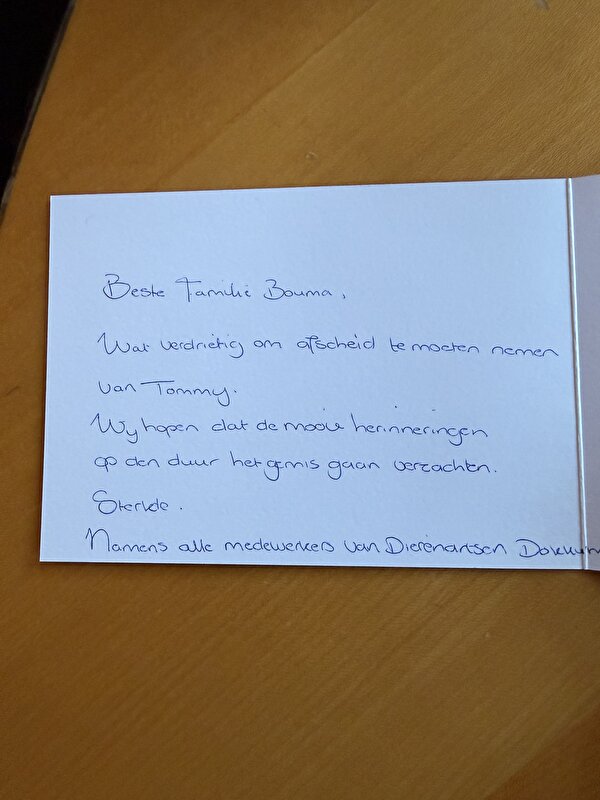 Beste Familie Bouma,
Wat verdrietig om afscheid te moeten nemen
van Tommy.
Wij hopen dat de mooie herinneringen
op den duur het gemis gaan verzachten.
Sterkte.
Namens alle medewerkers van Dierenartsen Dokkum